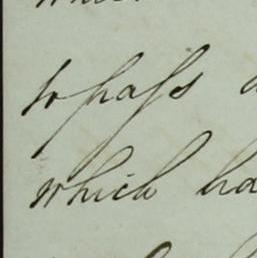 to pass
which ha